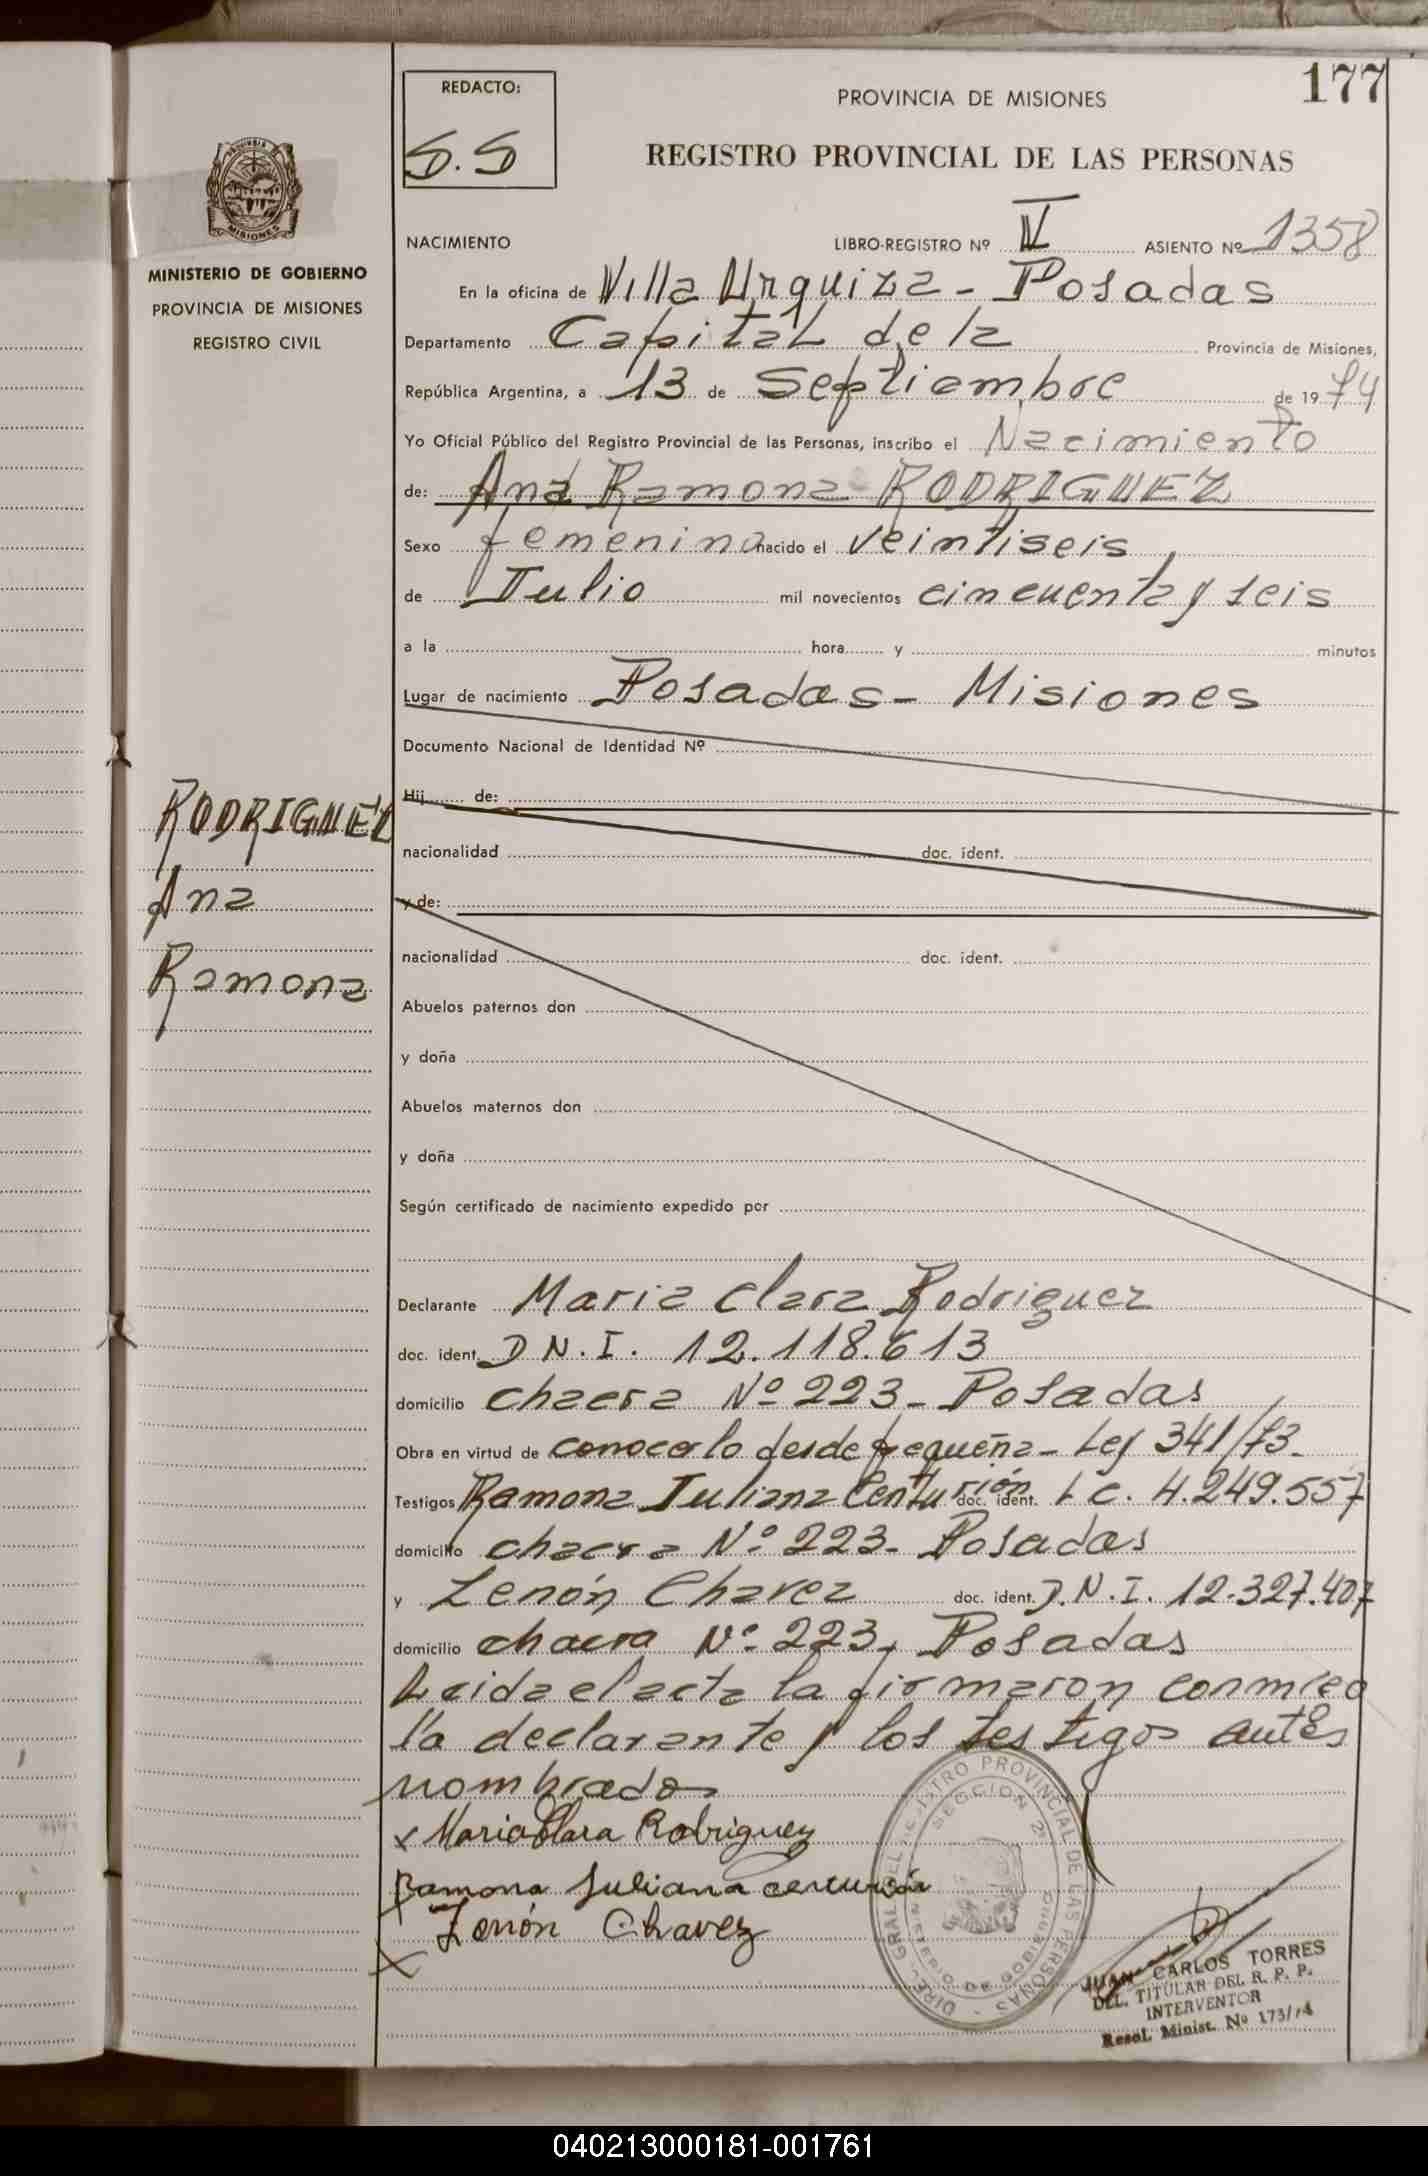 177
REDACTO:
S.S
PROVINCIA DE MISIONES
REGISTRO PROVINCIAL DE LAS PERSONAS
PROVINCIA DE MISIONES
MINISTERIO DE GOBIERNO
PROVINCIA DE MISIONES
REGISTRO CIVIL
NACIMIENTO LIBRO-REGISTRO Nº IV ASIENTO Nº 1358
En la oficina de Villa Urquiza - Posadas
Departamento Capital de la Provincia de Misiones,
República Argentina, a 13 de Septiembre de 1974
Yo Oficial Público del Registro Provincial de las Personas, inscribo el Nacimiento
de: Ana Ramona RODRIGUEZ
Sexo femenino nacido el veintiseis
de Julio mil novecientos cincuenta y seis
a la hora y minutos
Lugar de nacimiento Posadas - Misiones
Documento Nacional de Identidad Nº
Hij de:
nacionalidad doc. ident.
y de:
nacionalidad doc. ident.
Abuelos paternos don
y doña
Abuelos maternos don
y doña
Según certificado de nacimiento expedido por
RODRIGUEZ
Ana
Ramona
Declarante Maria Clara Rodriguez
doc. ident. D N. I. 12.118.613
domicilio chacra Nº 223 - Posadas
Obra en virtud de conocerlo desde pequeña - Ley 341/73.
Testigos Ramona Juliana Centurión doc. ident. L C. 4.249.557
domicilio chacra Nº 223 - Posadas
y Zenón Chavez doc. ident. D.N.I. 12.327.407
domicilio chacra Nº 223, Posadas
Leida el acta la firmaron conmigo
la declarante y los testigos antes
nombrados
x Maria Clara Rodriguez
Ramona Juliana Centurión
Zenón Chavez
DIREC. GRAL. DEL REGISTRO PROVINCIAL DE LAS PERSONAS -
SECCION 2ª
MINISTERIO DE GOBIERNO
JUAN CARLOS TORRES
DEL. TITULAR DEL R. P. P.
INTERVENTOR
Resol. Minist. Nº 173/74
040213000181-001761